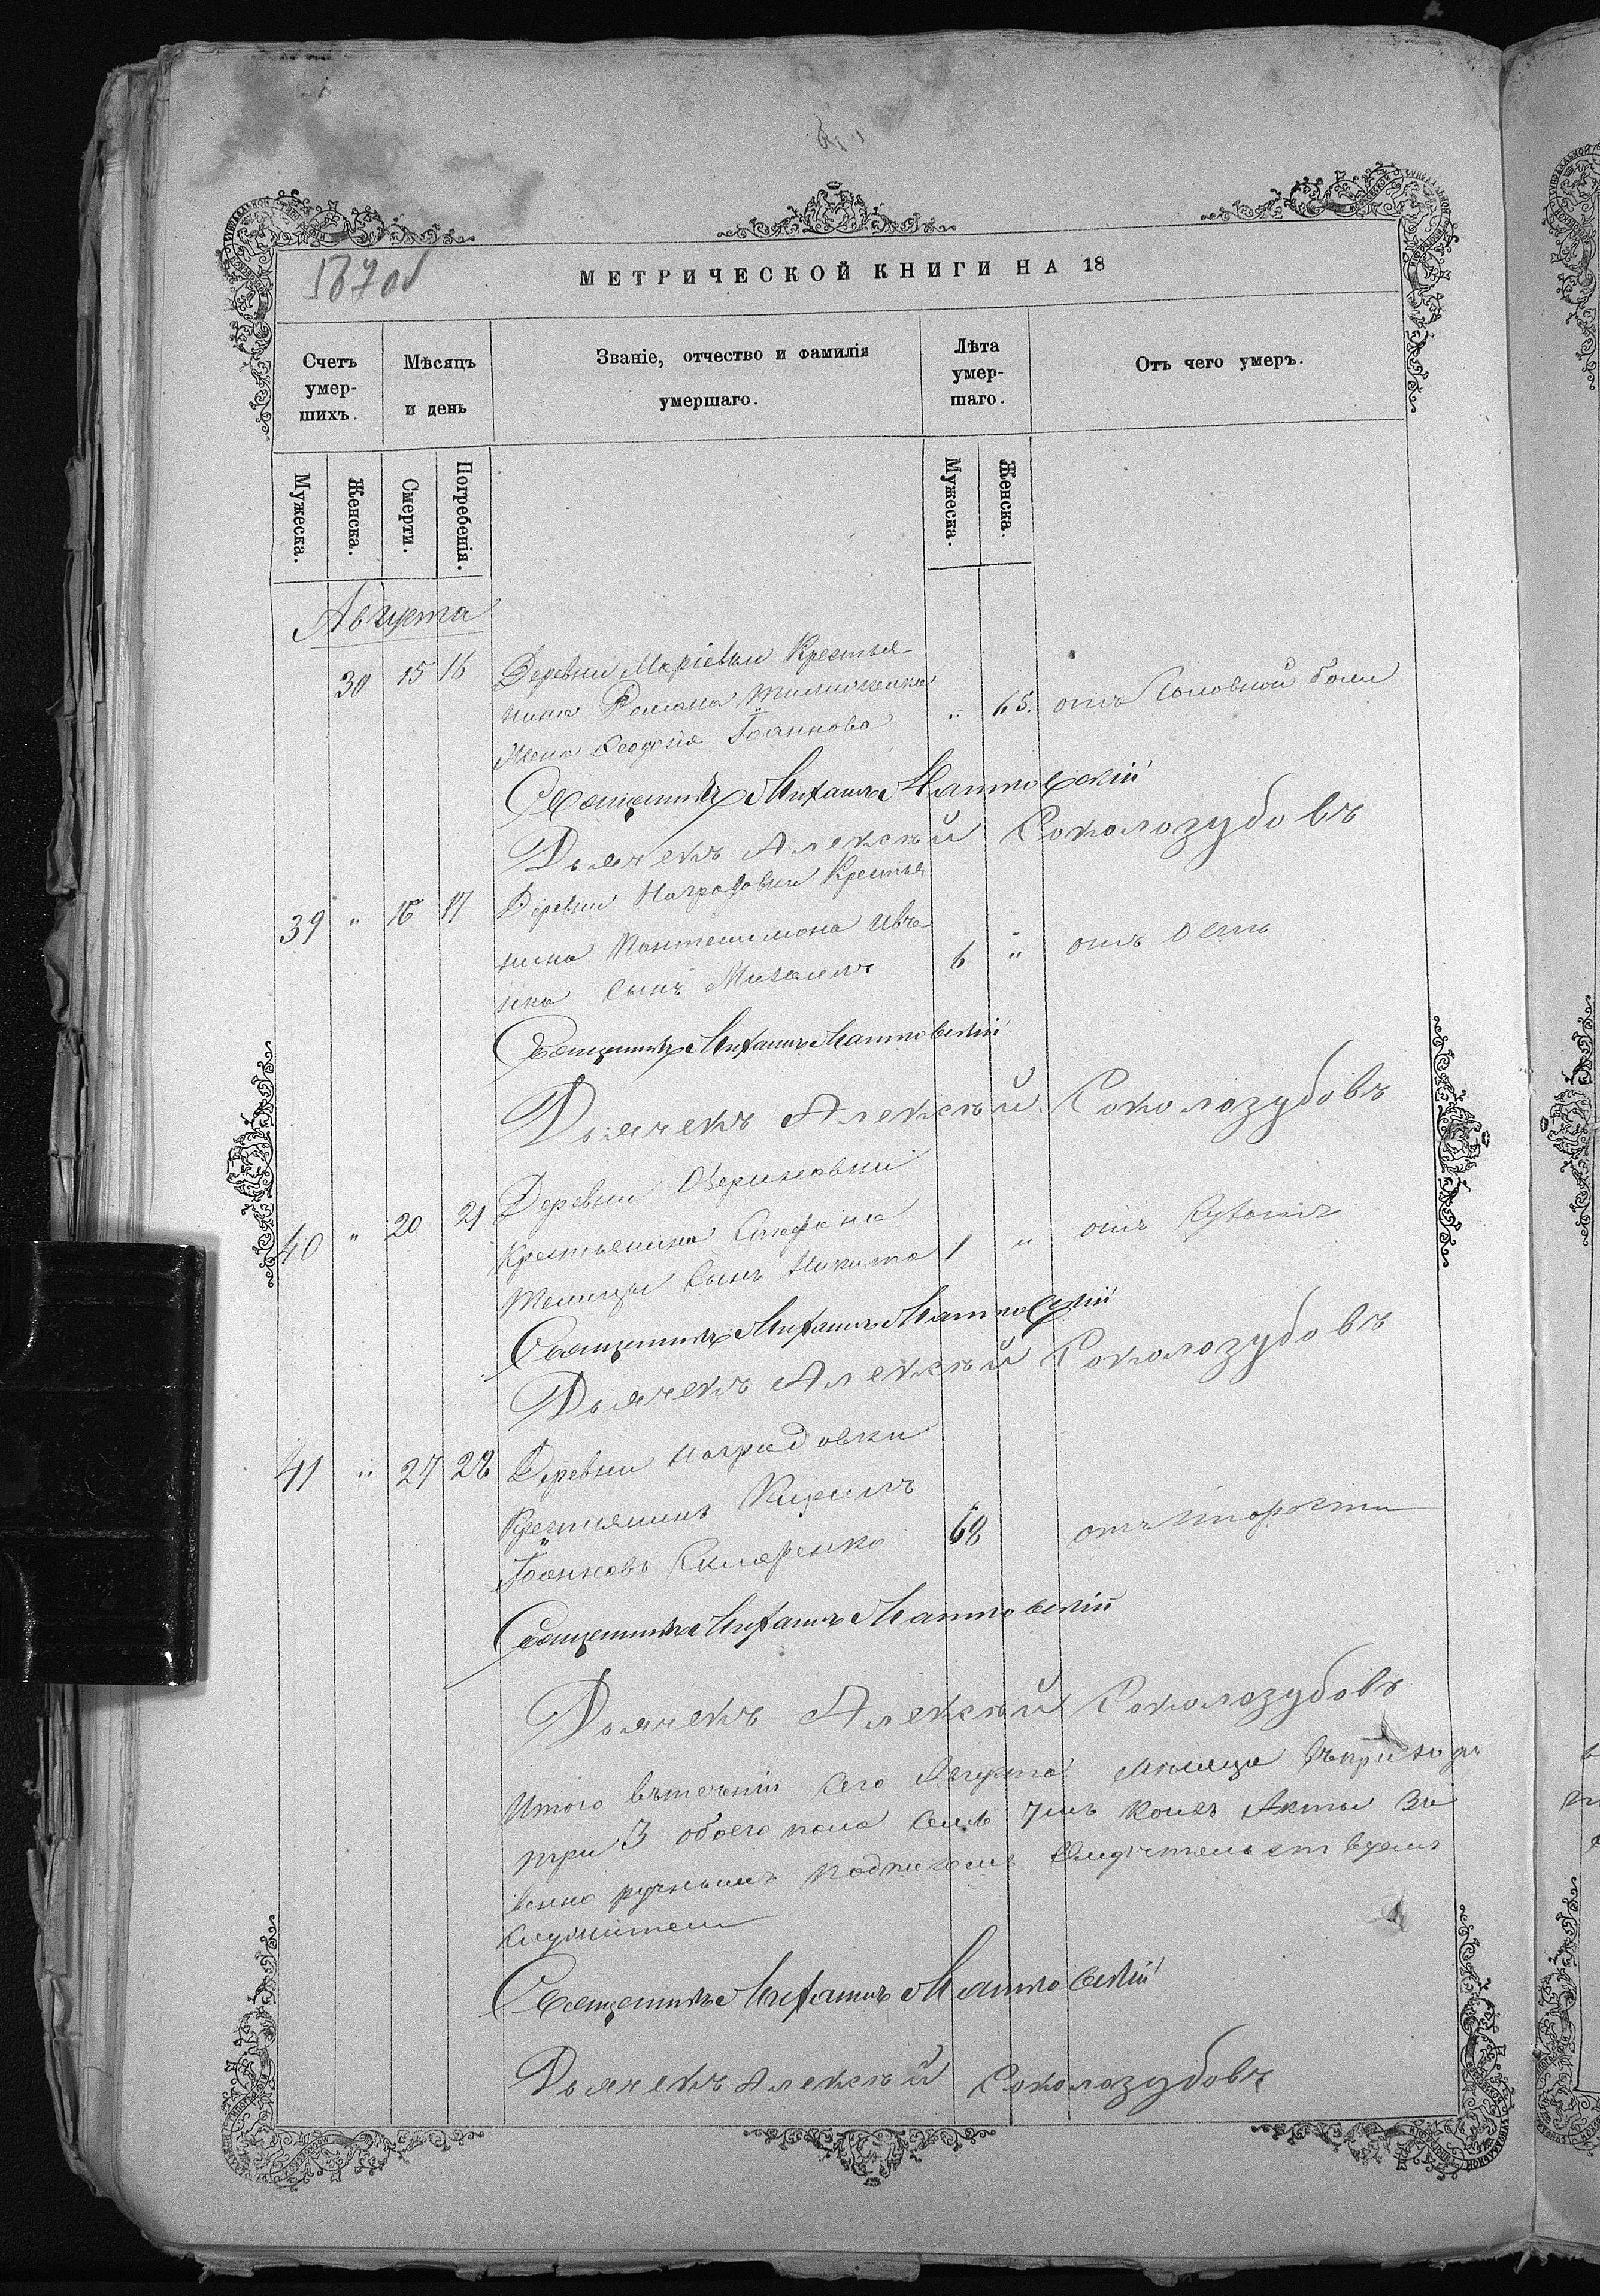 587об
МЕТРИЧЕСКОЙ КНИГИ НА 18
Счетъ умер-шихъ.
Мѣсяцъ и день
Званіе, отчество и фамилія умершаго.
Лѣта умер-шаго.
Отъ чего умеръ.
Мужеска.
Женска.
Смерти.
Погребенія.
Мужеска.
Женска.
Августа
30 15 16 Деревни Маріевки Крестья-
нина Романа
Жена Ѳеодосія Іоаннова " 65. отъ Головной боли
Священникъ Михаилъ Матковскій
Дьячекъ Алексѣй Соколозубовъ
39 " 16 17 Деревни Наградовки Крестья
нина Пантелимона Ивче-
нка Сынъ Михаилъ 6 " отъ оспы
Священникъ Михаилъ Матковскій
Дьячекъ Алексѣй Соколозубовъ
40 " 20 21 Деревни
Крестьянина Стефана
Сынъ Никита 1 " отъ
Священникъ Михаилъ Матковскій
Дьячекъ Алексѣй Соколозубовъ
41 " 27 28 Деревни Наградовки
Крестьянинъ Кирилъ
Іоанновъ Скляренко 68 отъ старости
Священникъ Михаилъ Матковскій
Дьячекъ Алексѣй Соколозубовъ
Итого втеченіи сего Августа мѣсяца
три 3 обоего пола семь 7мъ коихъ Акты
подписомъ
Священникъ Михаилъ Матковскій
Дьячекъ Алексѣй Соколозубовъ